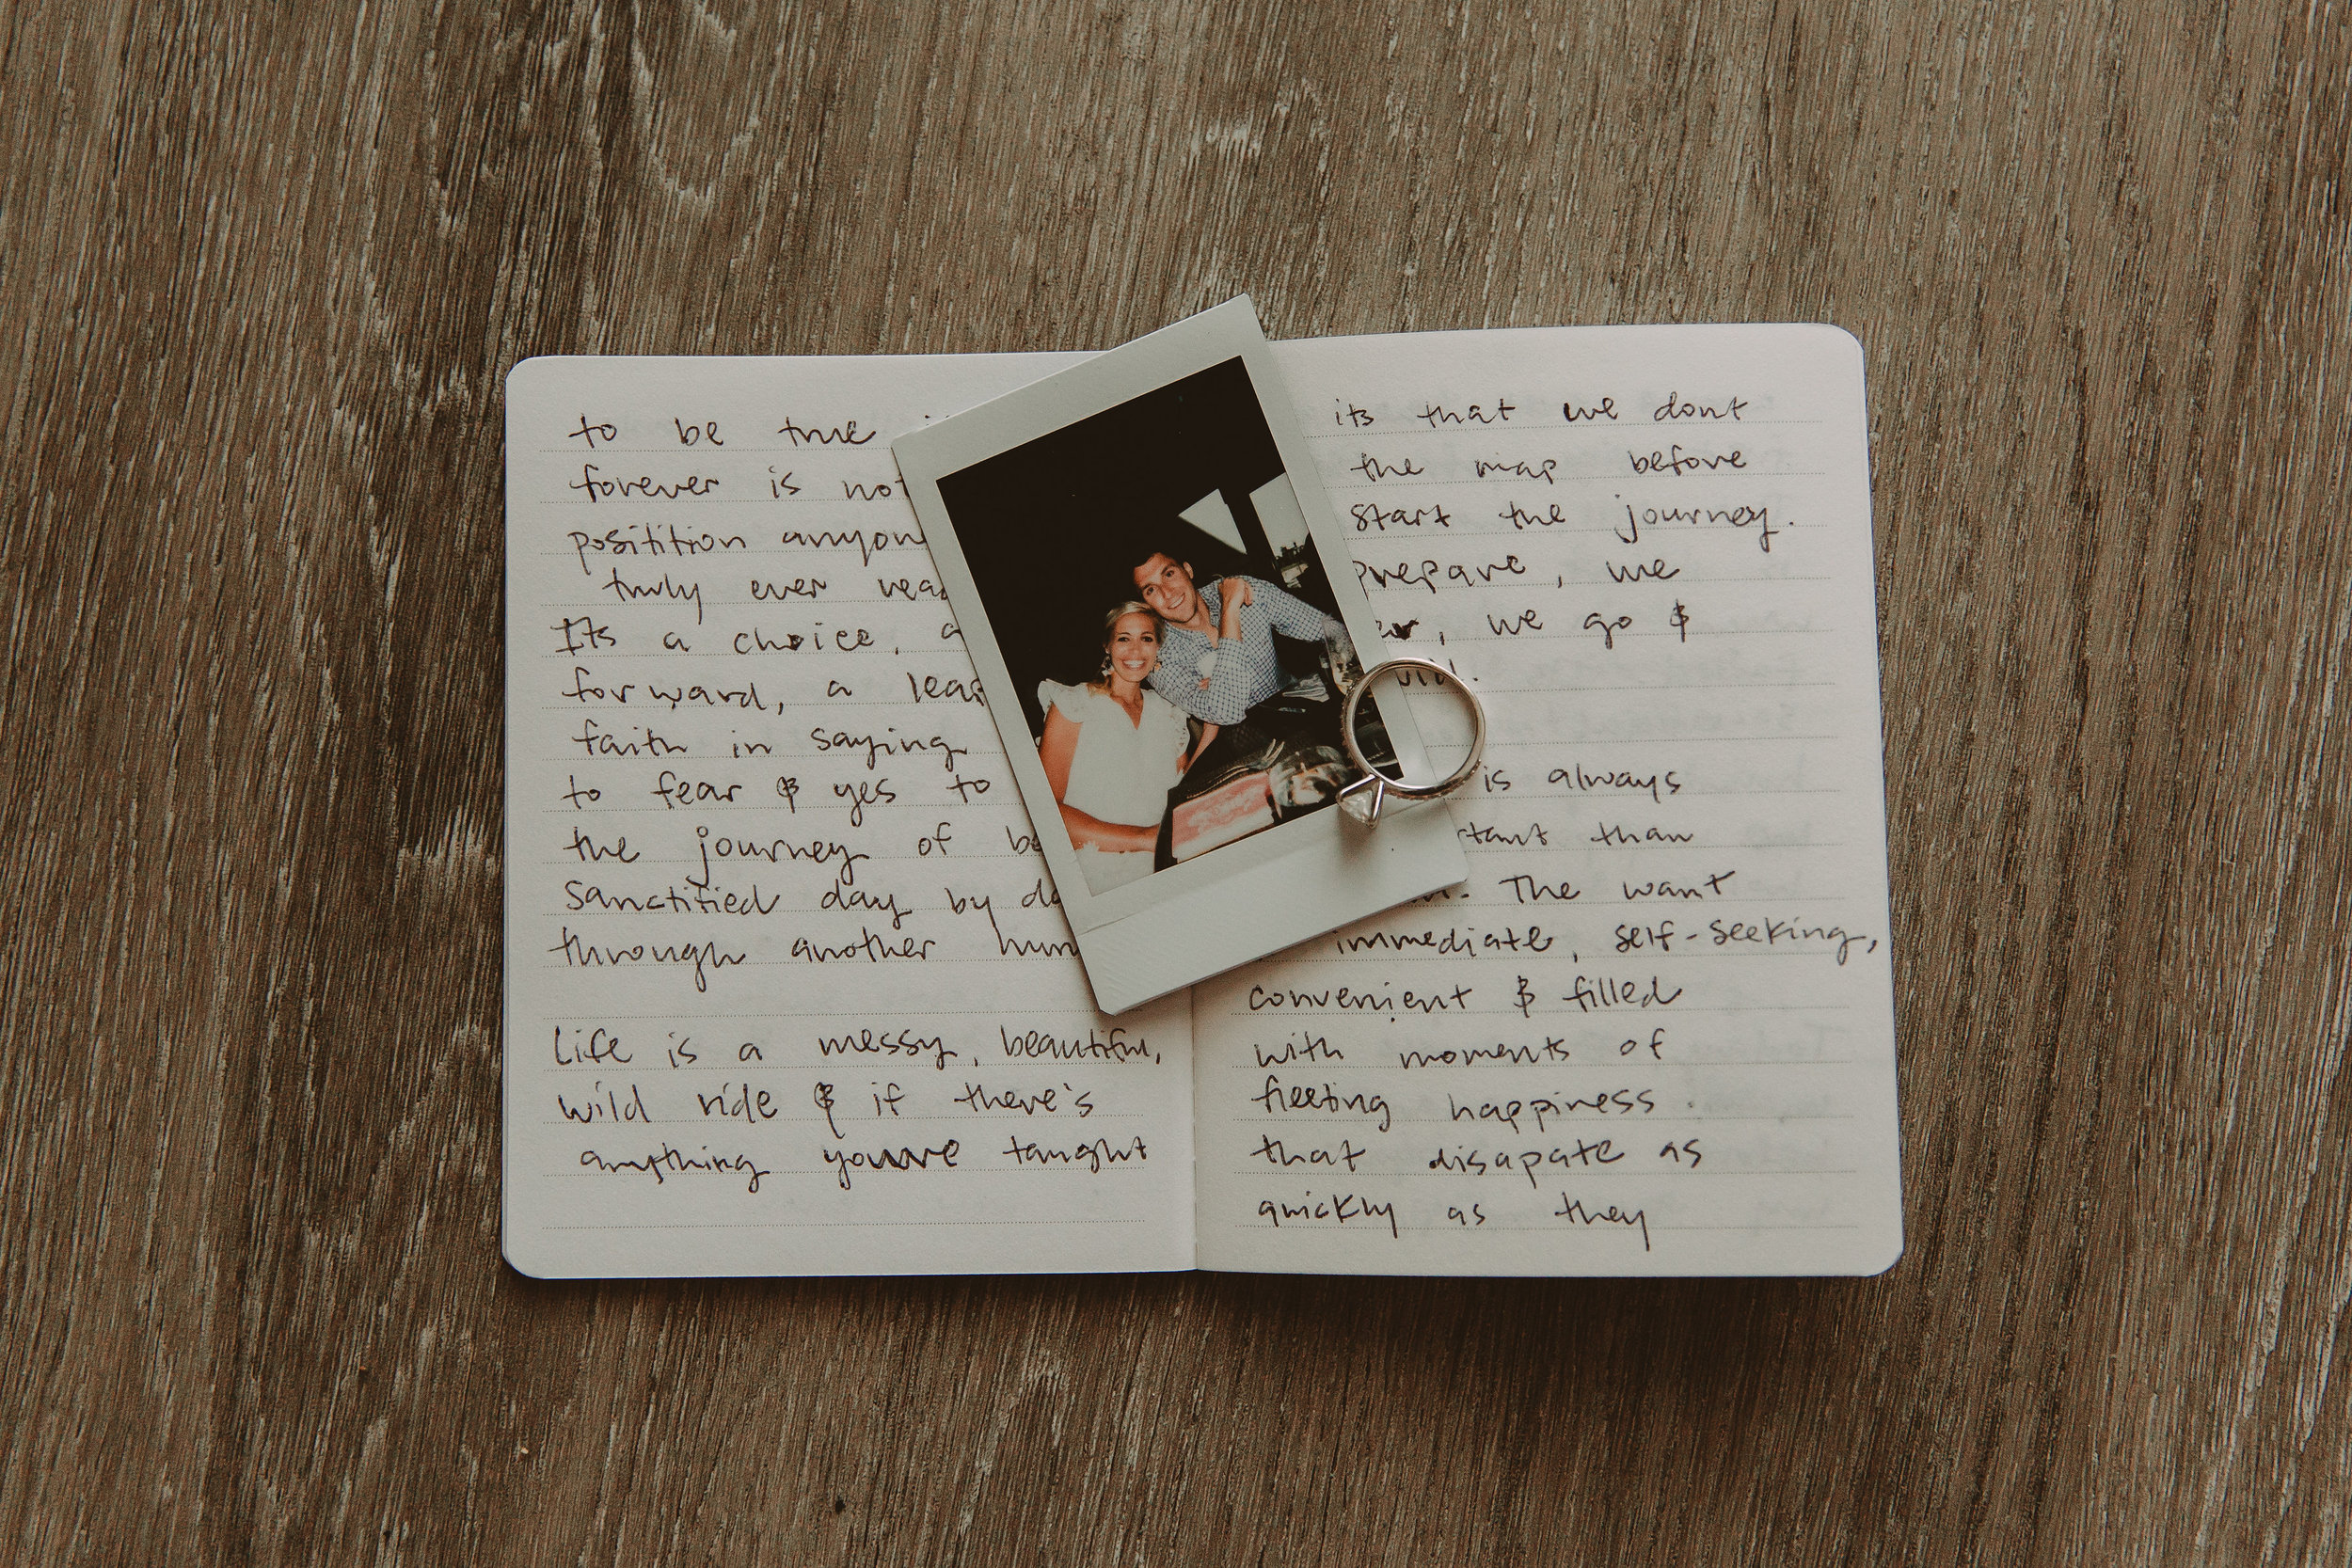 to be true
forever is not
positition anyone
truly ever
Its a choice, a
forward, a leap
faith in saying
to fear & yes to
the journey of
Sanctified day by
through another
Life is a messy, beautiful,
wild ride & if there's
anything youve taught
its that we dont
the map before
start the journey.
prepare, we
we go &
is always
than
The want
immediate, self-seeking,
convenient & filled
with moments of
fleeting happiness
that disapate as
quickly as they